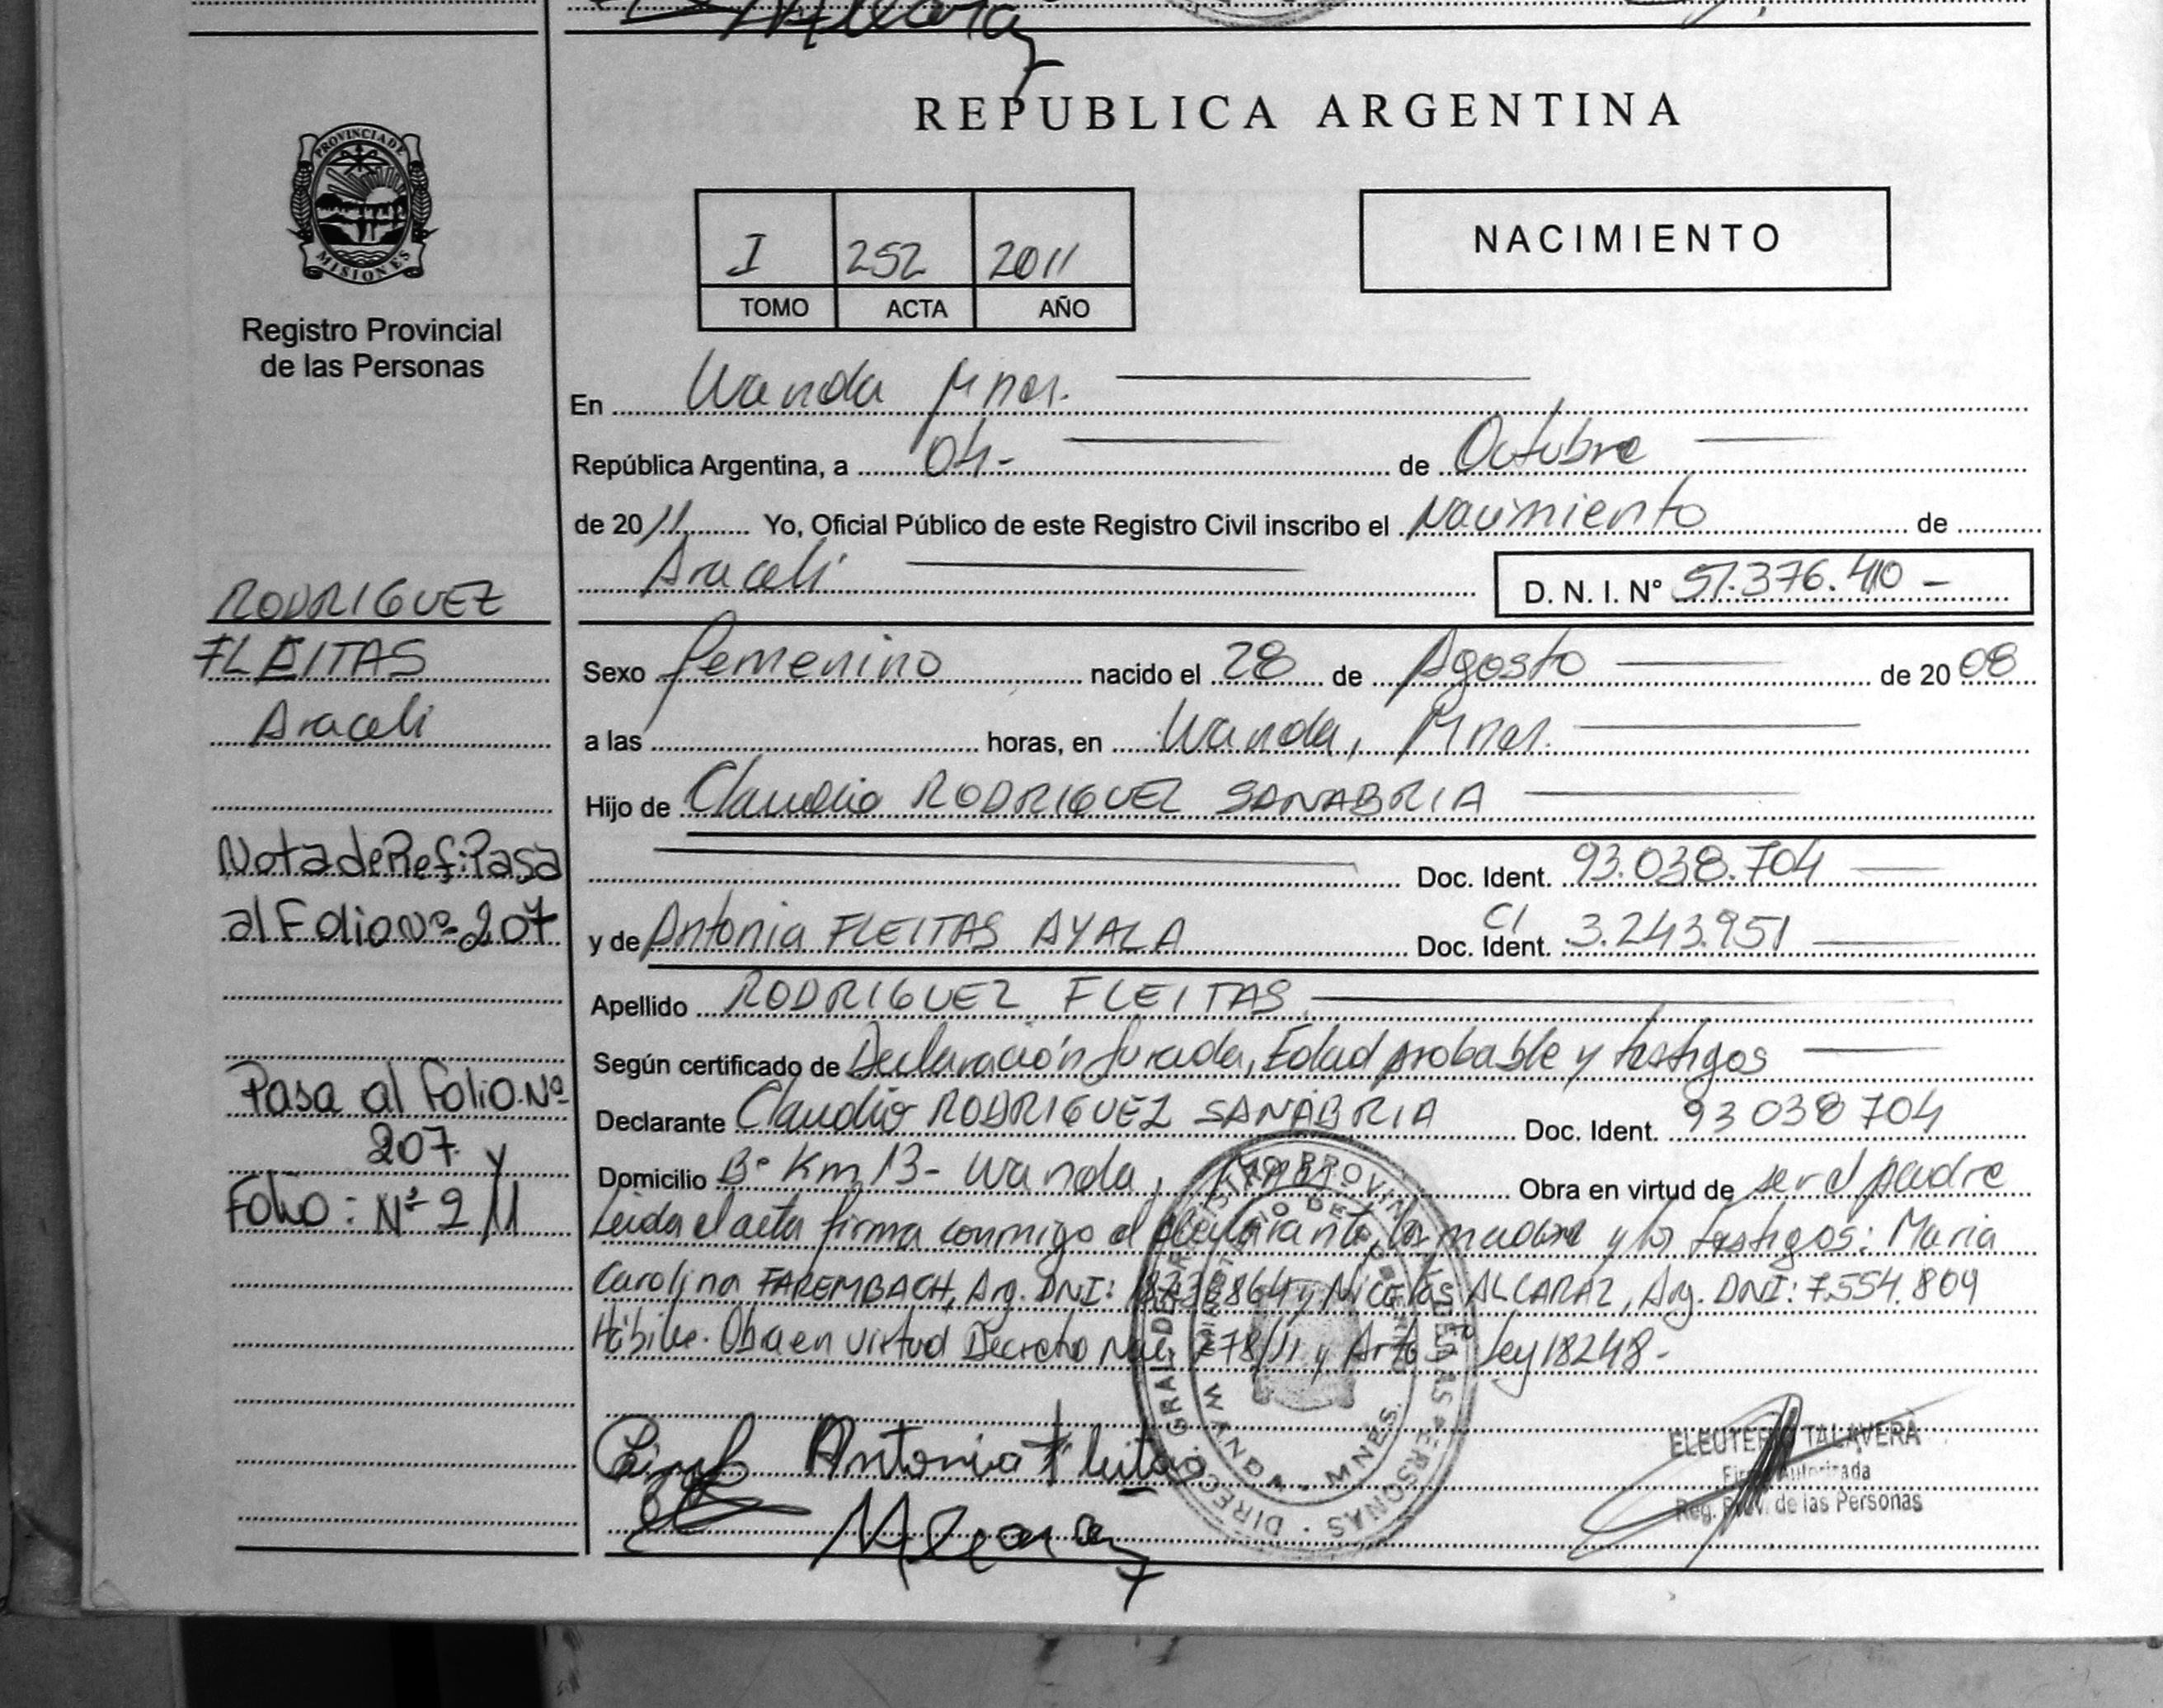 REPUBLICA ARGENTINA
PROVINCIA DE
MISIONES
Registro Provincial
de las Personas
I 252 2011
TOMO ACTA AÑO
NACIMIENTO
En Wanda Mnes.
República Argentina, a 04- de Octubre
de 2011 Yo, Oficial Público de este Registro Civil inscribo el Nacimiento de
Araceli D. N. I. N° 51.376.410 -
RODRIGUEZ
FLEITAS
Araceli
Nota de Ref: Pasa
al Folio Nº 207
Pasa al Folio Nº
207 y
Folio: Nº 211
Sexo femenino nacido el 28 de Agosto de 2008
a las horas, en Wanda, Mnes.
Hijo de Claudio RODRIGUEZ SANABRIA
Doc. Ident. 93.038.704
y de Antonia FLEITAS AYALA Doc. Ident. CI 3.243.951
Apellido RODRIGUEZ FLEITAS
Según certificado de Declaración Jurada, Edad probable y testigos
Declarante Claudio RODRIGUEZ SANABRIA Doc. Ident. 93 038 704
Domicilio Bº Km 13- Wanda, Obra en virtud de ser el padre
Leida el acta firma conmigo el declarante, la madre y los testigos: Maria
Carolina FAREMBACH, Arg. DNI: y Nicolas ALCARAZ, Arg. DNI: 7.554.809
Hábiles. Obra en virtud Decreto Nac. 278/11 y Art. Ley 18248-
Antonia Fleitas
ELEUTERIO TALAVERA
Firma Autorizada
Reg. Prov. de las Personas
WANDA - MNES.